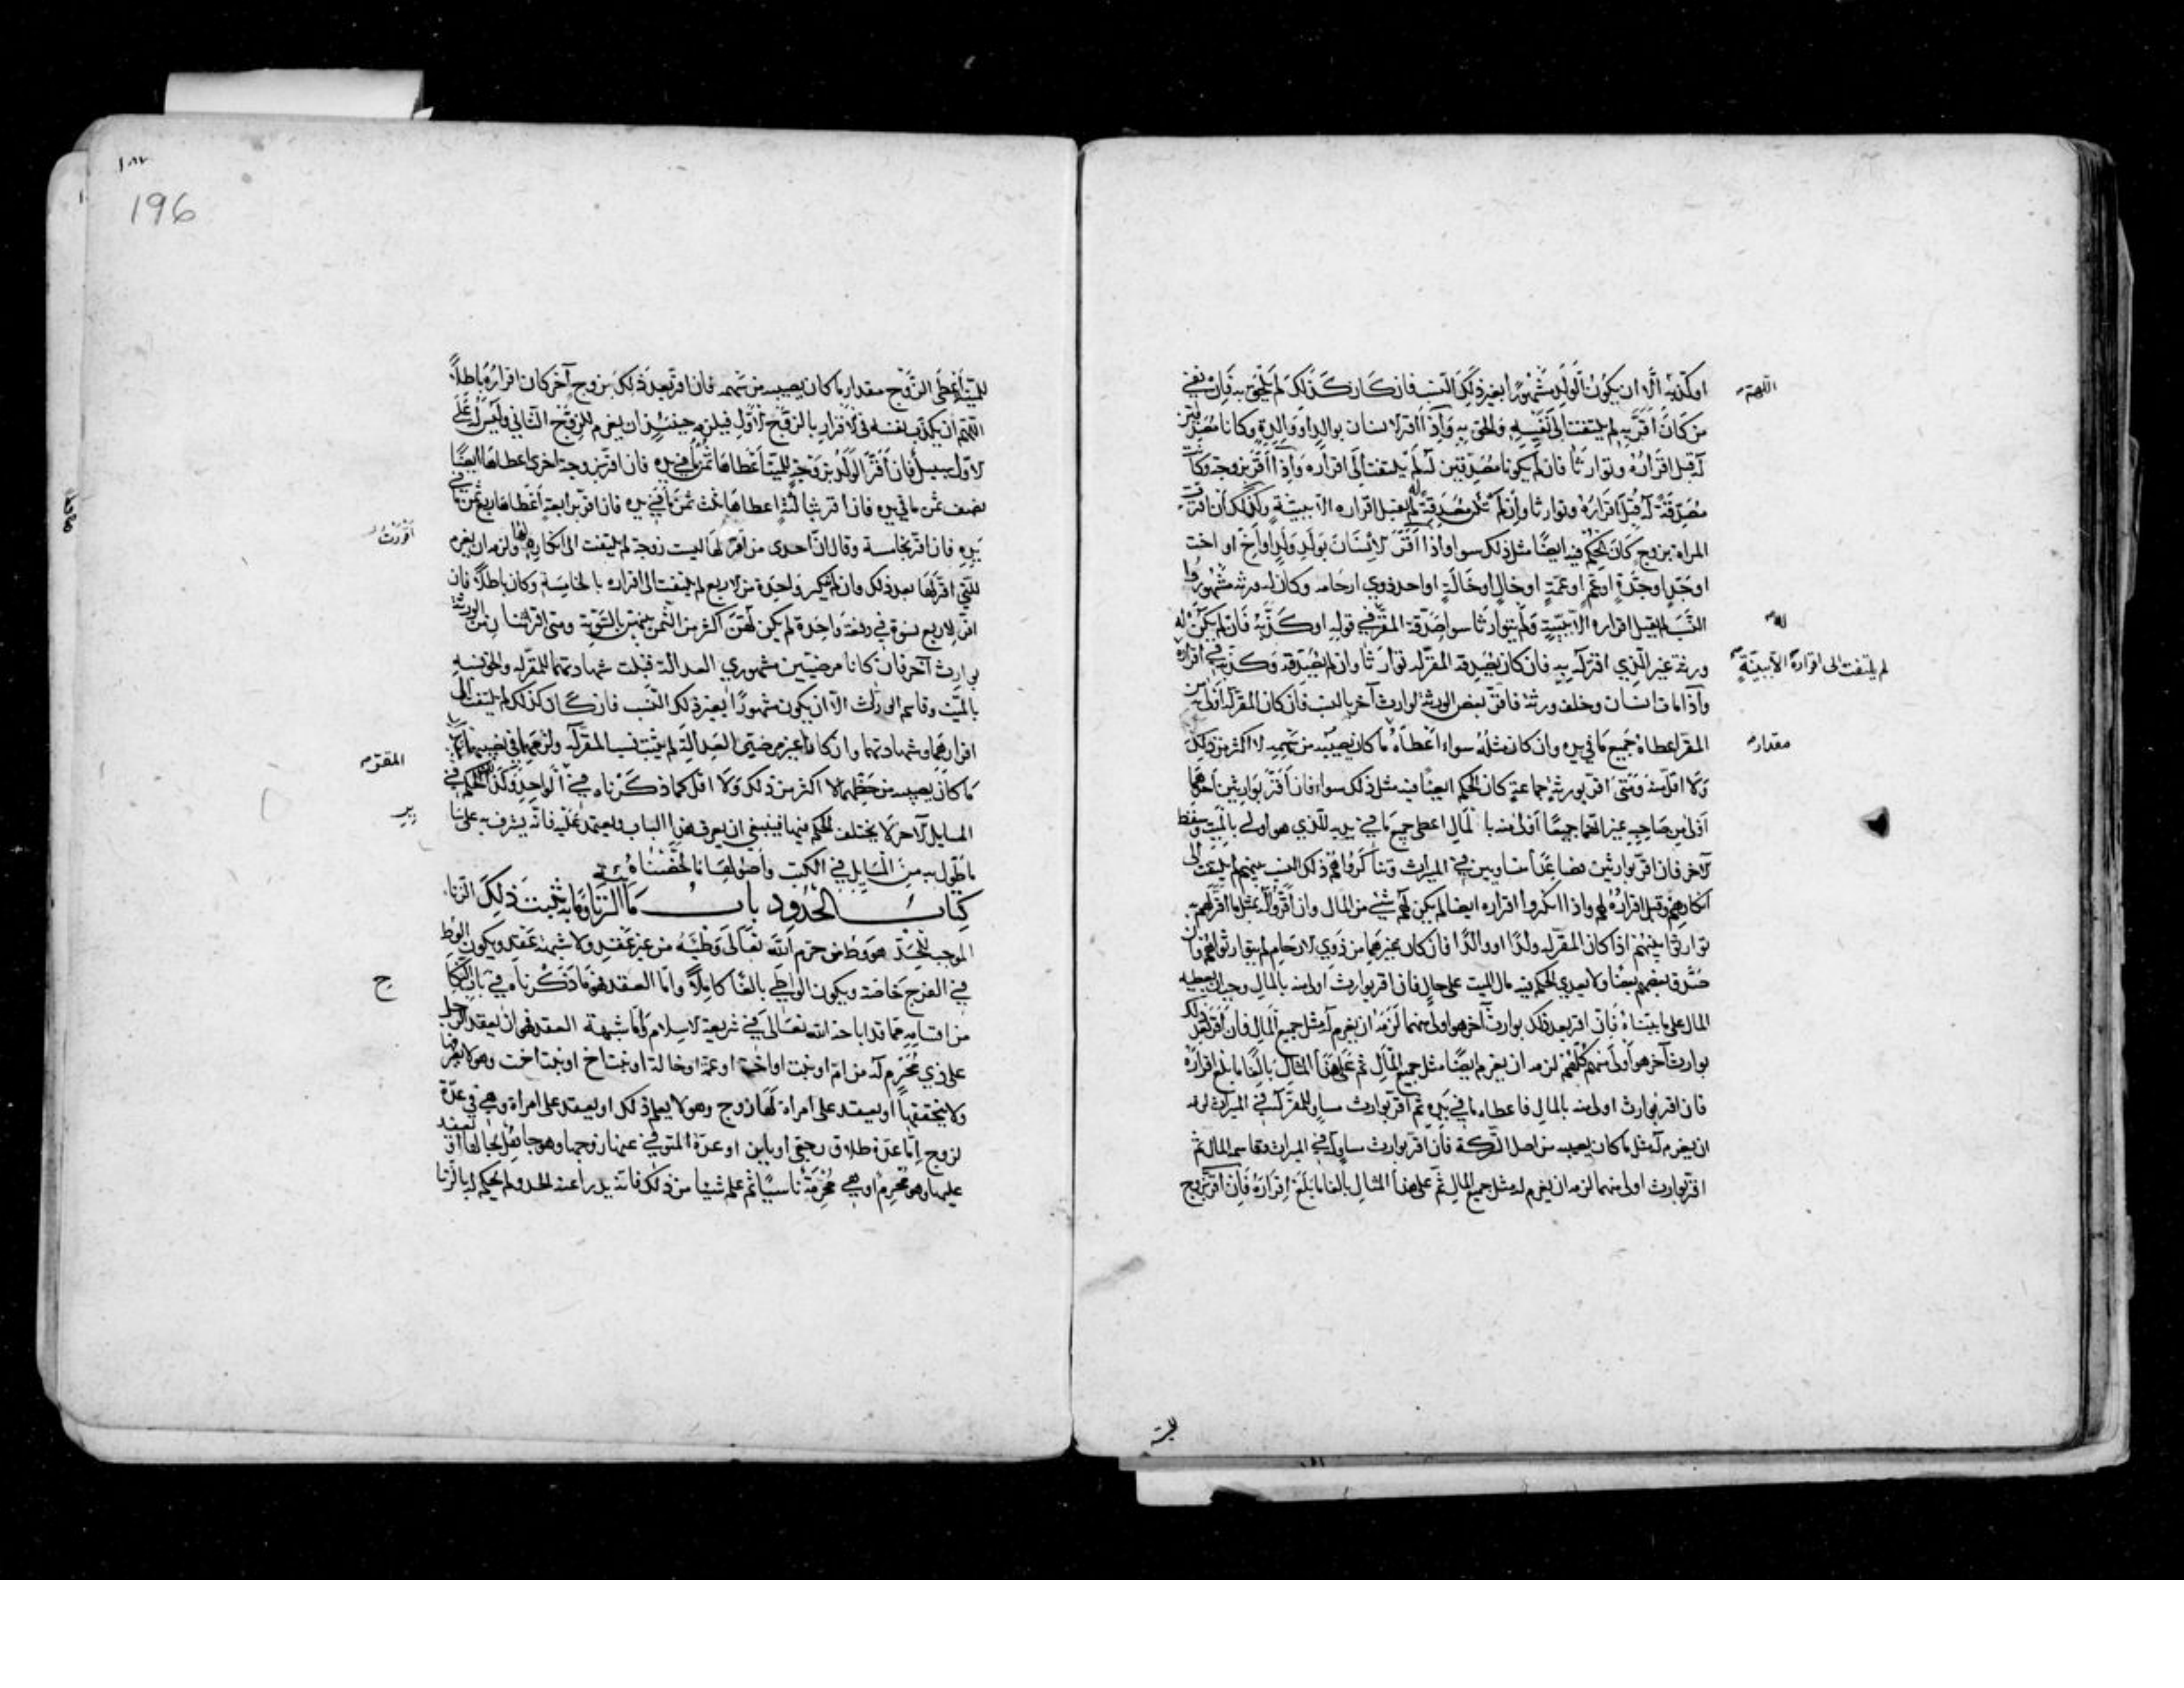 او كذبه الا ان يكون الولد مشهورا بغير ذلك النسب فان كان كذلك لم يلحق به فان نفى
من كان اقر به لم يلتفت الى نفيه والحق به واذا اقر الانسان بوالد او والدة وكانا مصدقين
له قبل اقراره وتوارثا فان لم يكونا مصدقين له لم يلتفت الى اقراره واذا اقر بزوجة وكانت
مصدقة له قبل اقراره وتوارثا وان لم تكن مصدقة له لم يقبل اقراره الا ببينة وكذلك ان اقرت
المراة بزوج كان الحكم فيه ايضا مثل ذلك سوا واذا اقر الانسان بولد ولد او اخ او اخت
او جد او جدة او عم او عمة او خال او خالة او احد ذوي ارحامه وكان له ورثة مشهوروا
النسب لم يقبل اقراره الا ببينة ولم يتوارثا سوا صدقه المقر في قوله او كذبه فان لم يكن له
ورثة غير الذي اقر له به فان كان يصدقه المقر له توارثا وان لم يصدقه وكذبه في اقراره
واذا مات انسان وخلف ورثة فاقر بعض الورثة لوارث آخر بالنسب فان كان المقر له اولى من
المقر اعطاه جميع ما في يده وان كان مثله سواء اعطاه ما كان يصيبه من سهمه لا اكثر من ذلك
ولا اقل منه ومتى اقر بورثة جماعة كان الحكم ايضا فيه مثل ذلك سواء فان اقر بوارثين احدهما
اولى من صاحبه غير انهما جميعا اولى منه بالمال اعطى جميع ما في يديه للذي هو اولى بالميت وسقط
الآخر فان اقر بوارثين فصاعدا متساويين في الميراث وتناكروا هم ذلك النسب بينهم لم يلتفت الى
انكارهم وقبل اقراره لهم واذا انكروا اقراره ايضا لم يكن لهم شئ من المال وان اقروا له بمثل ما اقر لهم به
توارثوا بينهم اذا كان المقر له ولدا او والدا فان كان غيرهما من ذوي الارحام لم يتوارثوا هم وان
صدق بعضهم بعضا ولا يعدي الحكم فيه مال الميت على حال فان اقر بوارث اولى منه بالمال وجب ان يعطيه
المال على ما بيناه فان اقر بعد ذلك بوارث آخر هو اولى منهما لزمه ان يغرم له مثل جميع المال فان اقر بعد ذلك
بوارث آخر هو اولى منهم كلهم لزمه ان يغرم ايضا مثل جميع المال ثم على هذا المثال بالغا ما بلغ اقراره
فان اقر بوارث اولى منه بالمال فاعطاه ما في يده ثم اقر بوارث مساو للمقر له في الميراث لزمه
ان يغرم له مثل ما كان يصيبه من اصل التركة فان اقر بوارث مساو له في الميراث وقاسمه المال ثم
اقر بوارث اولى منهما لزمه ان يغرم له مثل جميع المال ثم على هذا المثال بالغا ما بلغ اقراره فان اقر بزوج
له
لم يلتفت الى اقراره الا ببينة
مقدار
196
للميتة اعطى الزوج مقدار ما كان يصيبه من سهمه فان اقر بعد ذلك بزوج آخر كان اقراره باطلا
اللهم ان يكذب نفسه في الاقرار بالزوج الاول فيلزمه حينئذ ان يغرم للزوج الثاني وليس له على
الاول سبيل فان اقر الولد بزوجة للميت اعطاها ثمن ما في يده فان اقر بزوجة اخرى اعطاها ايضا
نصف ثمن ما في يده فان اقر بثالثة اعطاها ثلث ثمن ما في يده فان اقر برابعة اعطاها ربع ثمن ما في
يده فان اقر بخامسة وقال ان احدى من اقر لها ليست زوجة لم يلتفت الى انكاره لها ولزمه ان يغرم
للتي اقر لها بعد ذلك وان لم ينكر واحدة من الاربع لم يلتفت الى اقراره بالخامسة وكان باطلا فان
اقر للاربع نسوة في دفعة واحدة لم يكن لهن اكثر من الثمن بينهن بالسوية ومتى اقر اثنان من الورثة
بوارث آخر فان كانا مرضيين مشهوري العدالة قبلت شهادتهما للمقر له والحق نسبه
بالميت وقاسم الوراث الا ان يكون مشهورا بغير ذلك النسب فان كان كذلك لم يلتفت الى
اقرارهما وشهادتهما وان كانا غير مرضيي العدالة لم يثبت نسب المقر له ولزمهما في نصيبهما
ما كان يصيبه من حظهما لا اكثر من ذلك ولا اقل كما ذكرناه في الواحد وكذا الحكم في
المسايل الآخر لا يختلف الحكم فيها فينبغي ان يعرف هذا الباب ويعتمد عليه فانه يشرف به على
ما طول به من المسايل في الكتب واصولها ما لخصناه
كتاب الحدود باب ما الزنا وما به يثبت ذلك الزنا
الموجب للحد هو وطى من حرم الله تعالى وطيه من غير عقد ولا شبهة عقد ويكون الوطى
في الفرج خاصة ويكون الواطي بالغا كاملا واما العقد فهو ما ذكرناه في باب النكا
ح
من اقسامه مما قد اباحه الله تعالى في شريعة الاسلام واما شبهة العقد فهو ان يعقد الرجل
على ذي محرم له من ام او بنت او اخت او عمة او خالة او بنت اخ او بنت اخت وهو لا يعرفها
ولا يتحققها او يعقد على امراة لها زوج وهو لا يعلم ذلك او يعقد على امراة وهي في عدة
لزوج اما عدة طلاق رجعي او باين او عدة المتوفي عنها زوجها وهو جاهل بحالها او يعقد
عليها وهو محرم او هي محرمة ناسيا ثم علم شيئا من ذلك فانه يدرا عنه الحد ولم يحكم له بالزنا